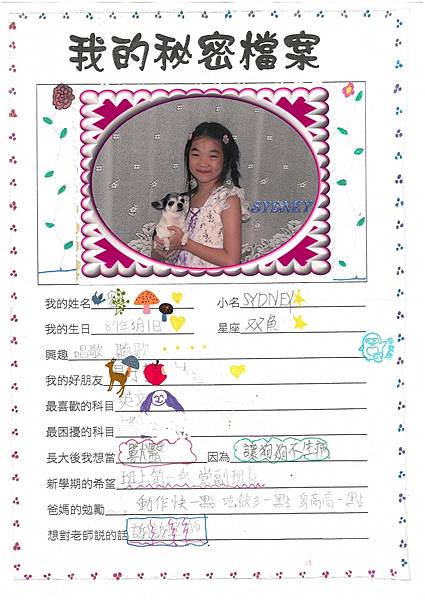 我的秘密檔案
SYDNEY
我的姓名 小名 SYDNEY
我的生日 87年3月1日 星座 双魚
興趣 唱歌 聽歌
我的好朋友
最喜歡的科目 英文
最困擾的科目
長大後我想當 獸醫 因為 讓狗狗不生病
新學期的希望 班上第一名 當副班長
爸媽的勉勵 動作快一點 吃飯多一點 身高高一點
想對老師說的話 謝謝